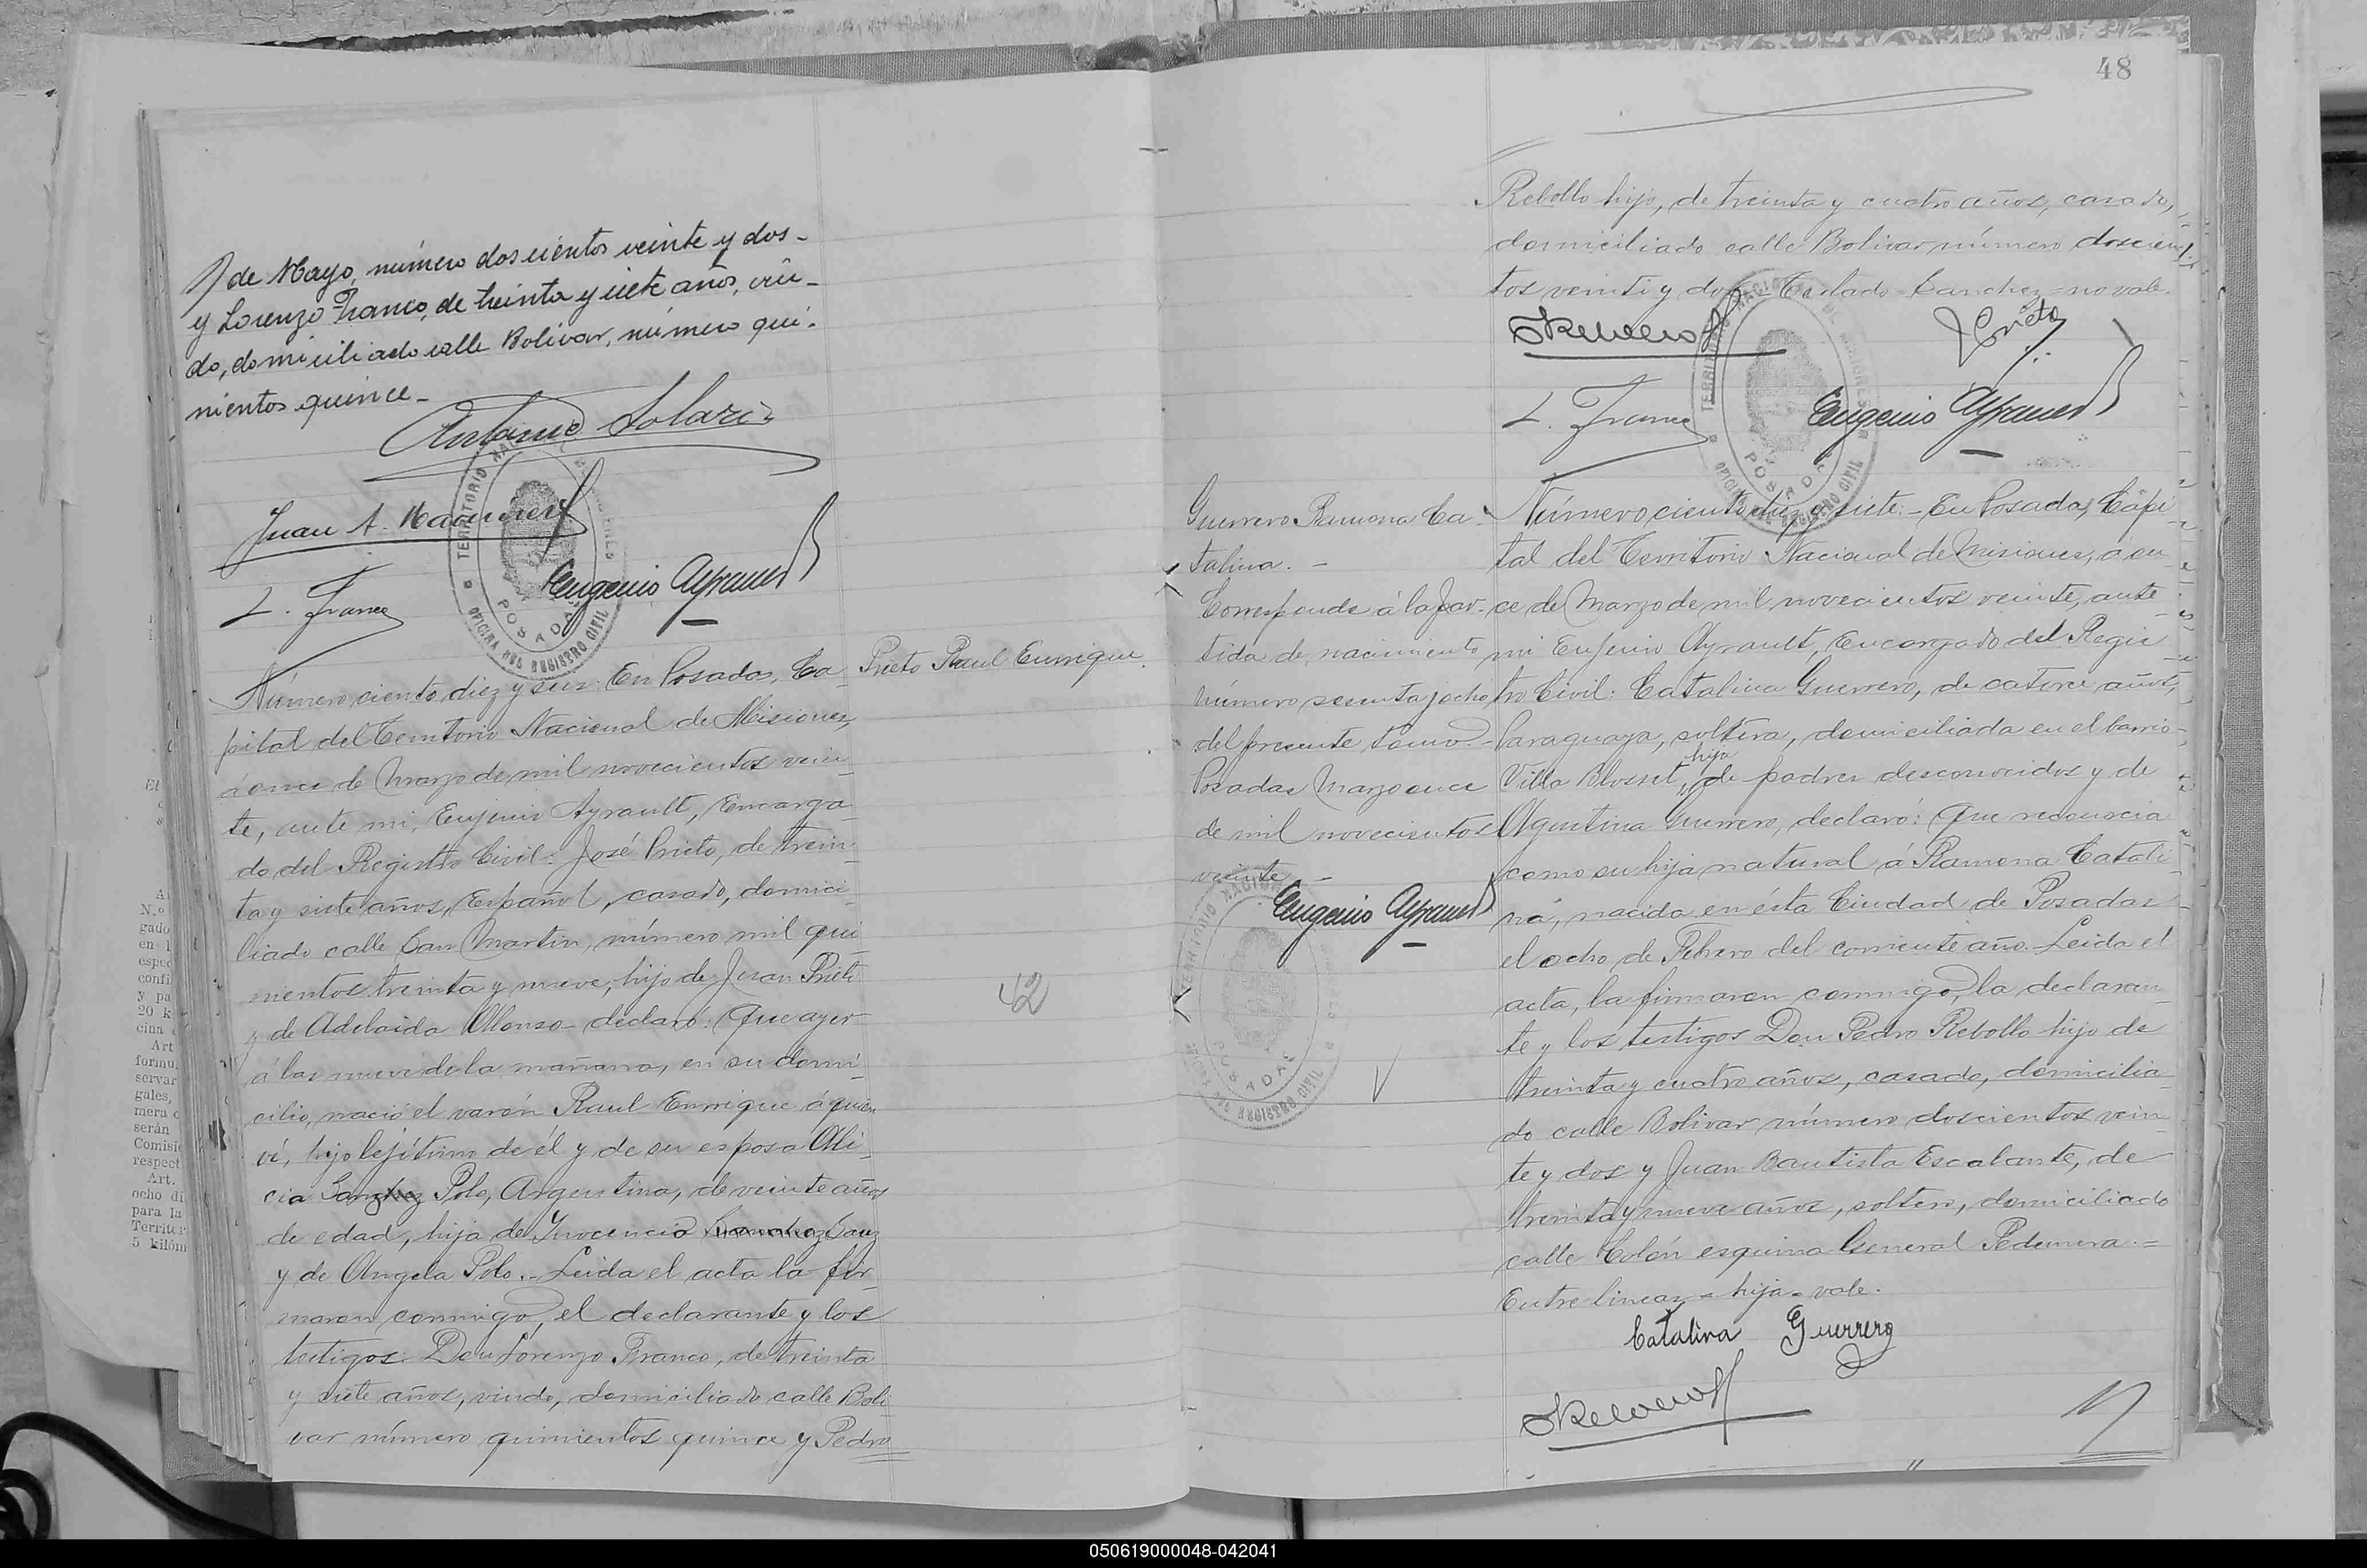 de Mayo, número doscientos veinte y dos-
y Lorenzo Franco, de treinta y siete años, viu-
do, domiciliado calle Bolivar, número qui-
nientos quince-
Antonio Solari
Juan A.
L. Franco
Eugenio Ayrault
TERRITORIO NACIONAL DE MISIONES
POSADAS
OFICINA DEL REGISTRO CIVIL
Prieto Raul Enrique
Número ciento diez y seis: En Posadas, Ca-
pital del Territorio Nacional de Misiones,
á once de Marzo de mil novecientos vein-
te, ante mi, Eujenio Ayrault, Encarga-
do del Registro Civil: José Prieto, de trein-
ta y siete años, Español, casado, domici-
liado calle San Martin, número mil qui-
nientos treinta y nueve, hijo de Juan Prieto
y de Adelaida Alonso- declaró: Que ayer
á las nueve de la mañana, en su domi-
cilio, nació el varón Raul Enrique á quien
ví, hijo lejítimo de él y de su esposa Ali-
cia Polo, Argentina, de veinte años
de edad, hija de Inocencio Sanz
y de Angela Polo.- Leida el acta la fir-
maron conmigo, el declarante y los
testigos: Don Lorenzo Franco, de treinta
y siete años, viudo, domiciliado calle Boli-
var número quinientos quince y Pedro
42
48
Rebollo hijo, de treinta y cuatro años, casado,
domiciliado calle Bolivar número doscien-
tos veinti y dos- Testado- Sanchez- no vale.
J Prieto
L. Franco
Eugenio Ayrault
TERRITORIO NACIONAL DE MISIONES
POSADAS
OFICINA DEL REGISTRO CIVIL
Guerrero Ramona Ca-
talina. -
Corresponde á la par-
tida de nacimiento
número sesenta y ocho
del presente tomo.-
Posadas Marzo once
de mil novecientos
veinte -
Eugenio Ayrault
TERRITORIO NACIONAL
POSADAS
OFICINA DEL REGISTRO CIVIL
Número ciento diez y siete:- En Posadas, Capi-
tal del Territorio Nacional de Misiones, á on-
ce de Marzo de mil novecientos veinte, ante
mi Eujenio Ayrault, Encargado del Regis-
tro Civil: Catalina Guerrero, de catorce años,
Paraguaya, soltera, domiciliada en el barrio
hija
Villa Blosset, de padres desconocidos y de
Agustina Guerrero, declaró: Que reconocia
como su hija natural á Ramona Catali-
na, nacida en ésta Ciudad de Posadas
el ocho de Febrero del corriente año.- Leida el
acta, la firmaron conmigo, la declaran-
te y los testigos Don Pedro Rebollo hijo de
treinta y cuatro años, casado, domicilia-
do calle Bolivar número doscientos vein-
te y dos y Juan Bautista Escalante, de
treinta y nueve años, soltero, domiciliado
calle Colón esquina General Pedernera.-
Entre lineas- hija- vale.
Catalina Guerrero
050619000048-042041